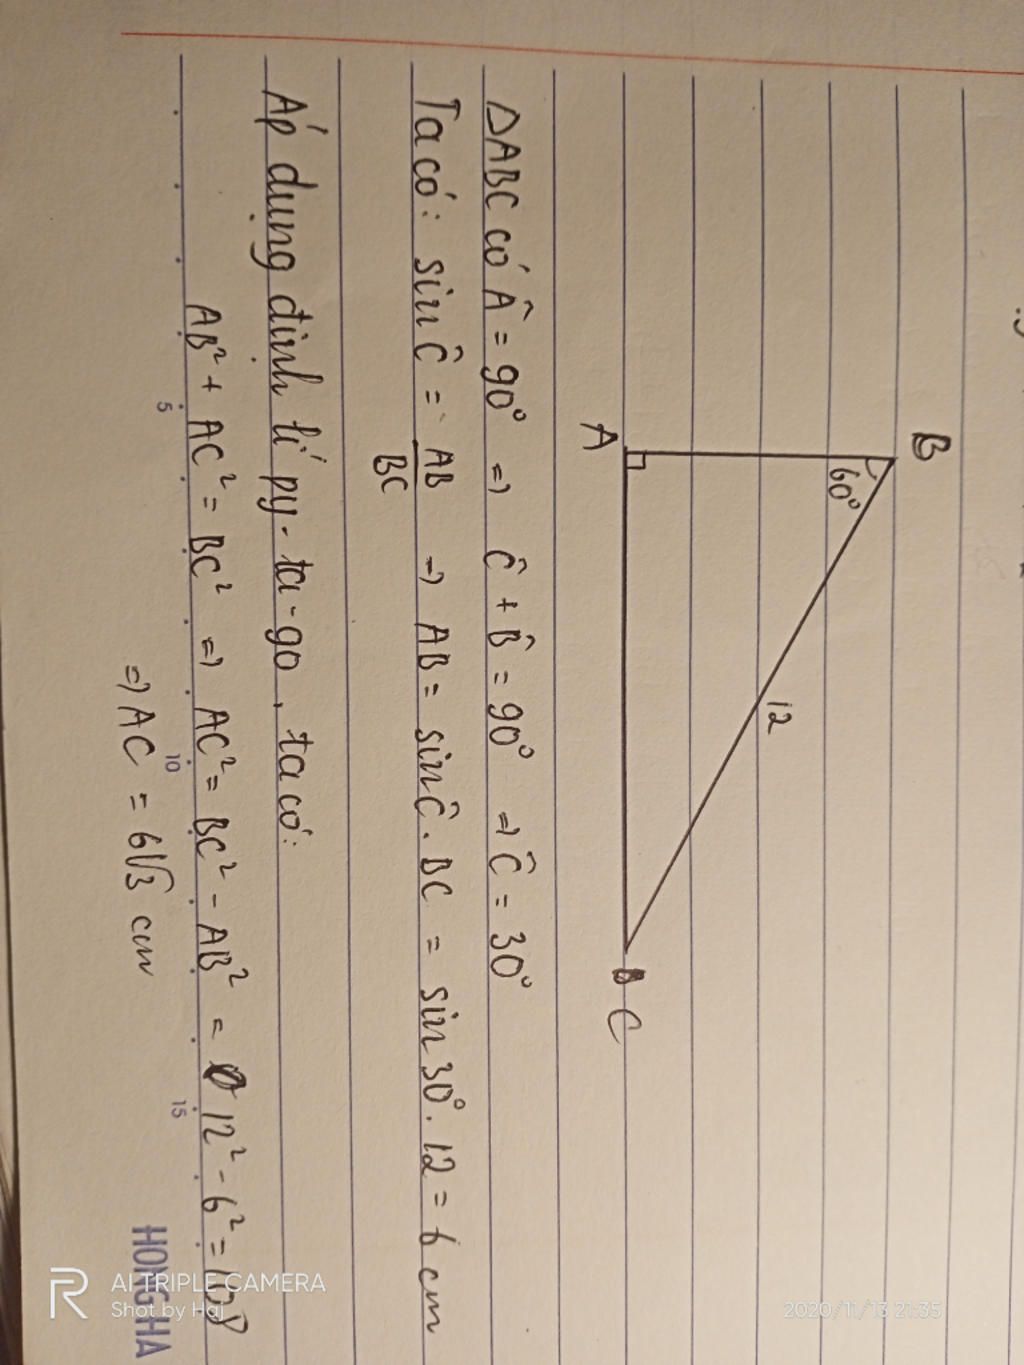 B
60°
12
A
C
ΔABC có Â = 90° => Ĉ + B̂ = 90° => Ĉ = 30°
Ta có: sin Ĉ = AB/BC => AB = sin Ĉ . BC = sin 30° . 12 = 6 cm
Áp dụng định lí py-ta-go, ta có:
AB² + AC² = BC² => AC² = BC² - AB² = 12² - 6² = 108
=> AC = 6√3 cm
5 10 15
HONG HA
AI TRIPLE CAMERA
Shot by Haj
2020/11/13 21:35